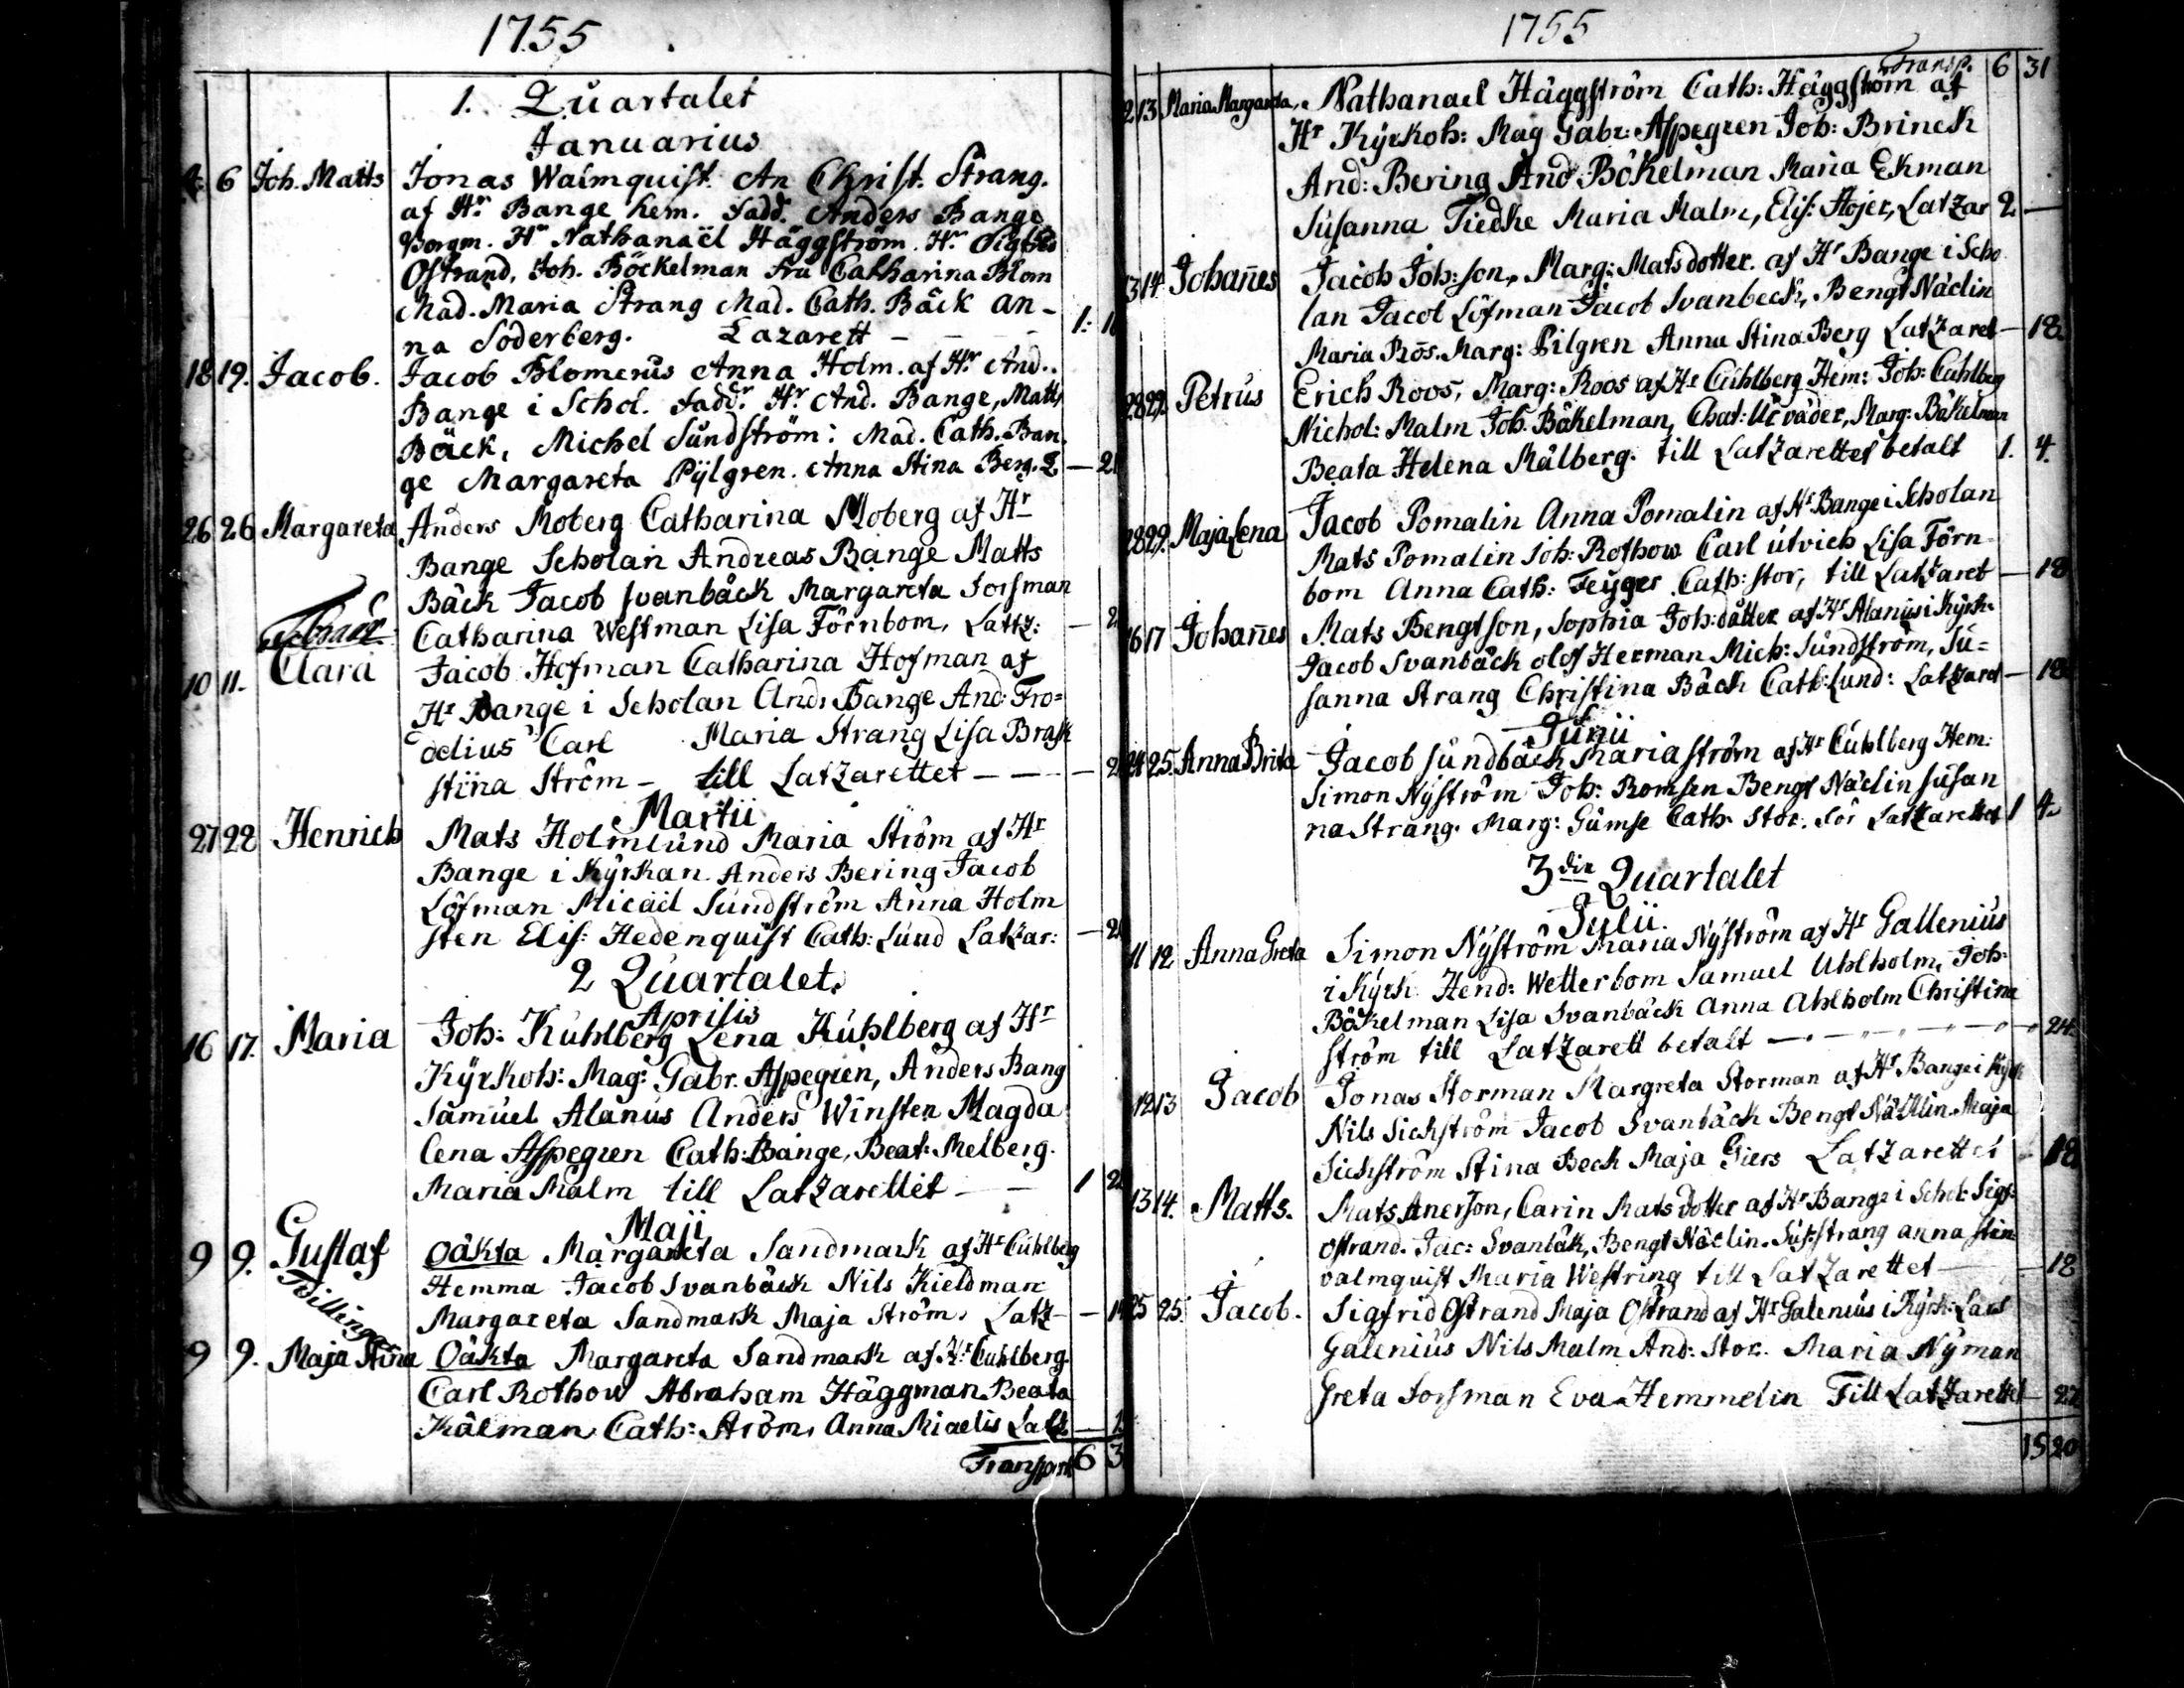 1755
1. Quartalet
Januarius
6 Joh. Matts Jonas Walmquist. An Christ. Strang.
af Hr. Bange hem. fadd. Anders Bange
Borgm. Hr Nathanaël Häggström. Hr. Sigfrid
Ostrand, Joh. Böckelman fru Catharina Blom
Mad. Maria Strang Mad. Cath. Bäck An-
na Söderberg. Lazarett - - - 1:
18 19. Jacob. Jacob Blomerus Anna Holm. af Hr. And.
Bange i Schol. fadd.r Hr. And. Bange, Matts
Bäck, Michel Sundström: Mad. Cath. Ban
ge Margareta Pÿlgren. Anna Stina Berg. L —
26 26 Margareta Anders Moberg Catharina Moberg af Hr
Bange Scholan Andreas Bange Matts
Bäck Jacob Svanbäck Margareta Forsman
Catharina Westman Lisa Törnbom, Lattz: —
Febraür
10 11. Clara Jacob Hofman Catharina Hofman af
Hr Bange i Scholan And: Bange And: Fro=
delius Carl Maria Strang Lisa Brask
stina Ström - till Latzarettet - - -
Martii
27 22 Henrich Mats Holmlund Maria Ström af Hr
Bange i Kÿrkan Anders Bering Jacob
Löfman Micäel Sundström Anna Holm
sten Elis: Hedenquist Cath: Lund Latzar: —
2 Quartalet.
Aprilis
16 17. Maria Joh: Kuhlberg Lena Kuhlberg af Hr
Kÿrkoh: Mag: Gabr. Aspegren, Anders Bang
Samuel Alanus Anders Winsten Magda
lena Aspegren Cath: Bange, Beat: Melberg.
Maria Malm till Latzarettet - - 1
Maji
9 9. Gustaf Oäkta Margareta Sandmark af Hr Cuhlberg
Tvillingar
Hemma Jacob Svanbäck Nils Kieldman
Margareta Sandmark Maja Ström. Latz —
9 9. Maja Stina Oäkta Margareta Sandmark af Hr Cuhlberg
Carl Rothow Abraham Häggman Beata
Kålman Cath: Ström, Anna Miaelis Latz —
Transport 6 3
1755
Transp. 6 31
13 Maria Margareta, Nathanael Häggström Cath: Häggström af
Hr Kÿrkoh: Mag Gabr: Aspegren Joh: Brinck
And: Bering And Bökelman Maria Ekman
Susanna Tiedke Maria Malm, Elis: Höjer, Latzar 2 —
13 14 Johañes Jacob Joh:son, Marg: Matsdotter. af Hr Bange i Scho
lan Jacob Löfman Jacob Svanbeck, Bengt Näclin
Maria Ros. Marg: Pilgren Anna Stina Berg Latzaret — 18
28 29. Petrus Erich Roos, Marg: Roos af Hr Cuhlberg Hem: Joh: Cuhlberg
Nichol: Malm Joh. Bäkelman, Chat: Urväder, Marg: Bäkelman
Beata Helena Målberg. till Latzarettet betalt 1. 4.
28 29. Maja Lena Jacob Pomalin Anna Pomalin af Hr Bange i Scholan
Mats Pomalin Joh: Rothow Carl utvich Lisa Törn
bom Anna Cath: Feyger Cath: stor, till Latzaret — 18
16 17 Johañes Mats Bengtson, Sophia Joh:dåtter af Hr Alanus i Kyrk.
Jacob Svanbäck olof Herman Mich: Sundström, Su=
sanna Strang Christina Bäck Cath: Lund: Latzaret — 18
Junii
24 25. Anna Brita Jacob Sundbäck Maria ström af Hr Cuhlberg Hem:
Simon Nÿström Joh: Romsen Bengt Näclin Susan
na Strang. Marg: Gumse Cath. Stor. för Latzarettet 1 4.
3die Quartalet
Julii.
11 12 Anna Greta Simon Nÿström Maria Nÿström af Hr Gallenius
i Kÿrk Hend: Wetterbom Samuel Uhlholm, Joh:
Bökelman Lisa Svanbäck Anna Ahlholm Christina
ström till Latzarett betalt — 24.
12 13 Jacob Jonas Storman Margreta Storman af Hr Bange i Kyrk
Nils Sickström Jacob Svanbäck Bengt Näcklin Maja
Sickström Stina Beck Maja Giers Latzarettet 18
13 14. Matts. Mats Anerson, Carin Mats dotter af Hr Bange i Schol: Sigf:
ostrand. Jac: Svanbäk, Bengt Näclin. Sus: strang anna stin
valmquist Maria Westring till Latzarettet — 18
25 25. Jacob. Sigfrid Ostrand Maja Ostrand af Hr Galenius i Kyrk: Lars
Galenius Nils Malm And: Stor. Maria Nÿman
greta Forsman Eva Hemmelin Till Latzarettet — 27
15 20